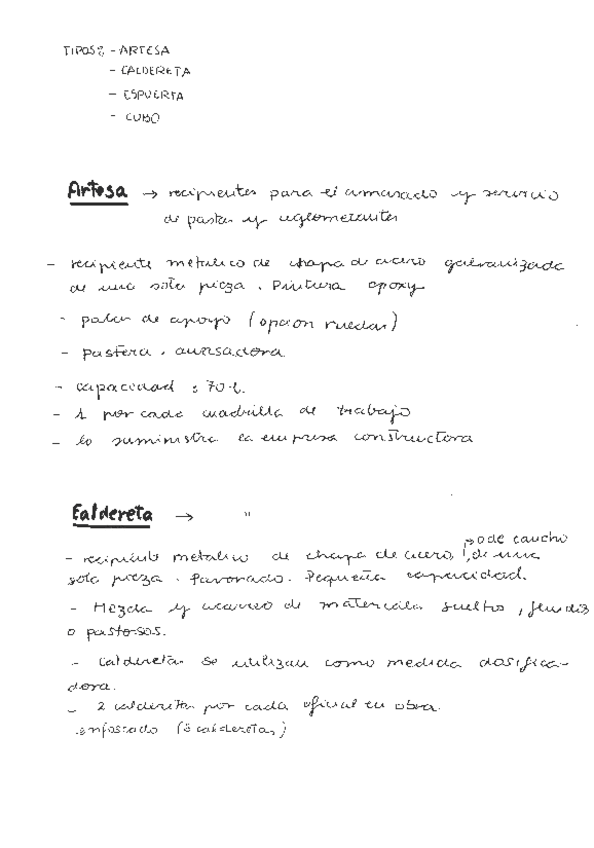 TIPOS: - ARTESA
- CALDERETA
- ESPUERTA
- CUBO
Artesa → recipientes para el amasado y servicio
de pastas y aglomerantes
- recipiente metalico de chapa de acero galvanizada
de una sola pieza. Pintura epoxy
- patas de apoyo (opcion ruedas)
- pastera.
- capacidad : 70 l.
- 1 por cada cuadrilla de trabajo
- lo suministra la empresa constructora
Caldereta → "
→ o de caucho
- recipiente metalico de chapa de acero, de una
sola pieza. Pavonado. Pequeña capacidad.
- Mezcla y acarreo de materiales sueltos, fluidos
o pastosos.
- Calderetas se utilizan como medida dosifica-
dora.
- 2 calderetas por cada oficial en obra.
enfoscado ( calderetas)